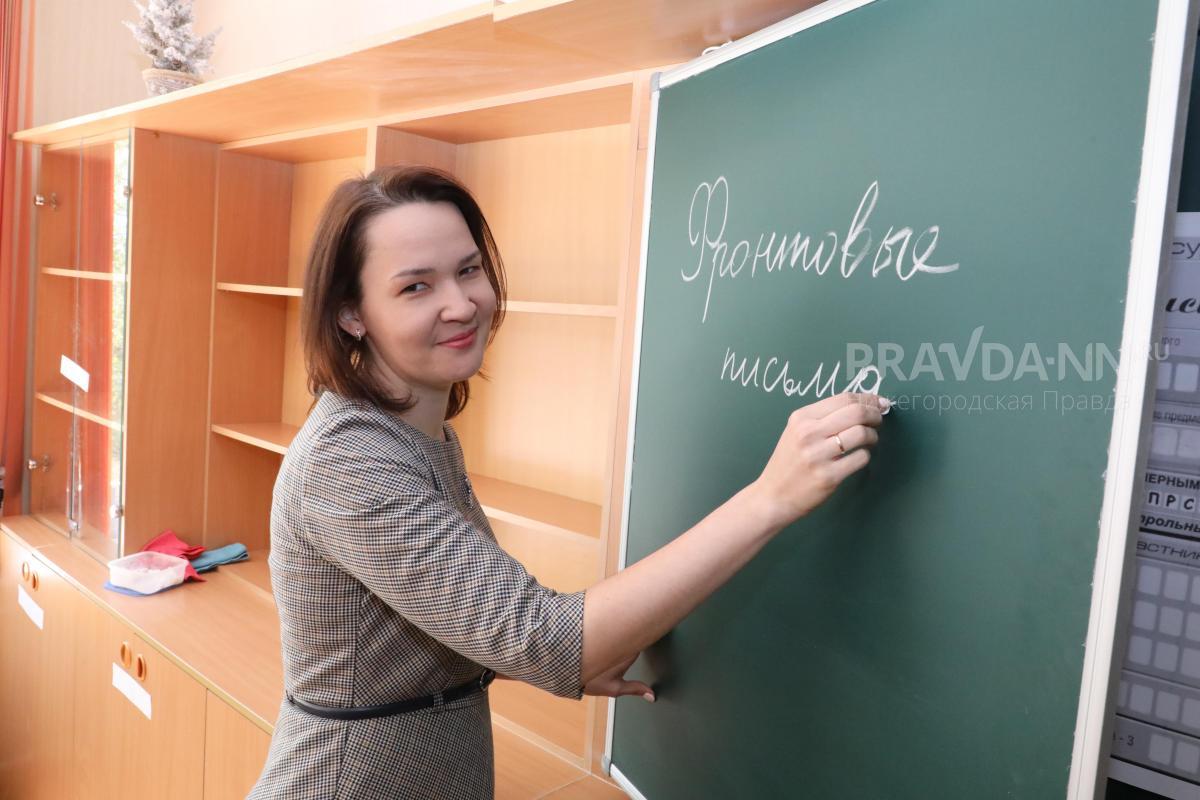 Фронтовые
письма
PRAVDA-NN.RU
Нижегородская Правда
ЧЕРНЫМ
ПРС